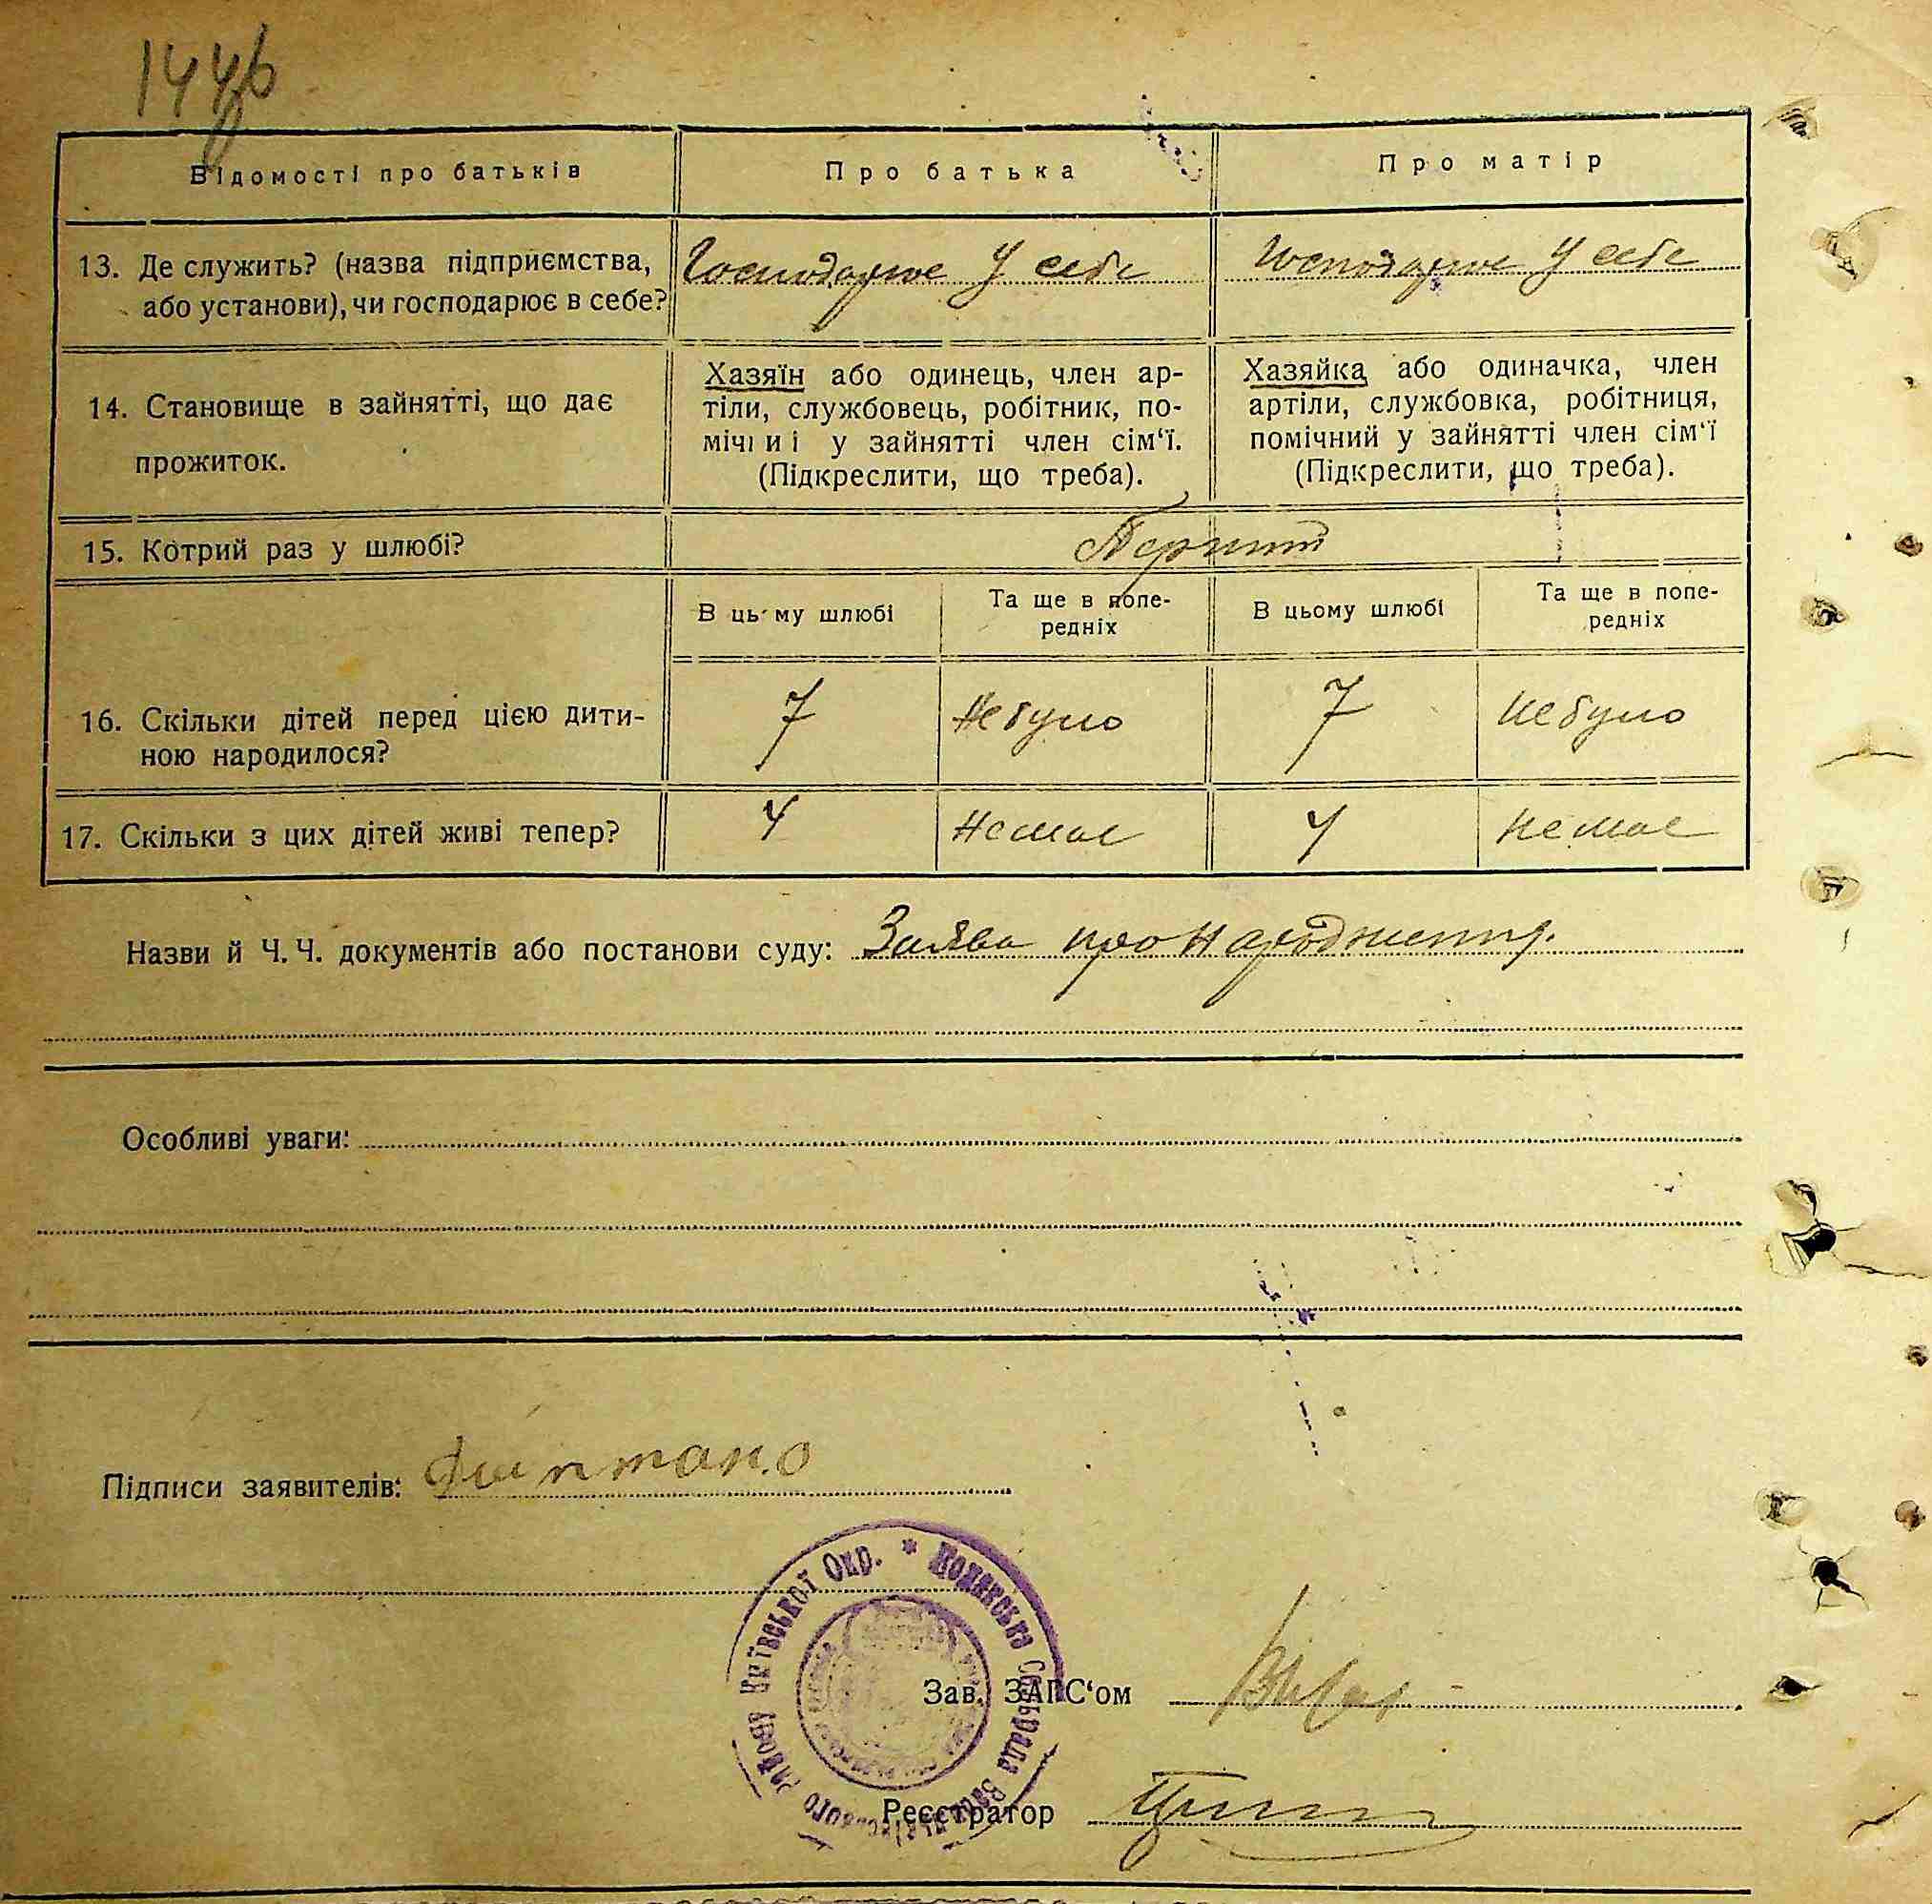 144
Відомості про батьків
Про батька
Про матір
13. Де служить? (назва підприємства,
або установи), чи господарює в себе?
Господарює у себе
Господарює у себе
14. Становище в зайнятті, що дає
прожиток.
Хазяїн або одинець, член ар-
тіли, службовець, робітник, по-
мічний у зайнятті член сім'ї.
(Підкреслити, що треба).
Хазяйка або одиначка, член
артіли, службовка, робітниця,
помічний у зайнятті член сім'ї
(Підкреслити, що треба).
15. Котрий раз у шлюбі?
Перший
В цьому шлюбі
Та ще в попе-
редніх
В цьому шлюбі
Та ще в попе-
редніх
16. Скільки дітей перед цією дити-
ною народилося?
7
Небуло
7
Небуло
17. Скільки з цих дітей живі тепер?
4
Немає
4
Немає
Назви й Ч.Ч. документів або постанови суду: Заява про народження.
Особливі уваги:
Підписи заявителів:
Київської Окр. * Сільрада району
Зав. ЗАГС'ом
Реєстратор